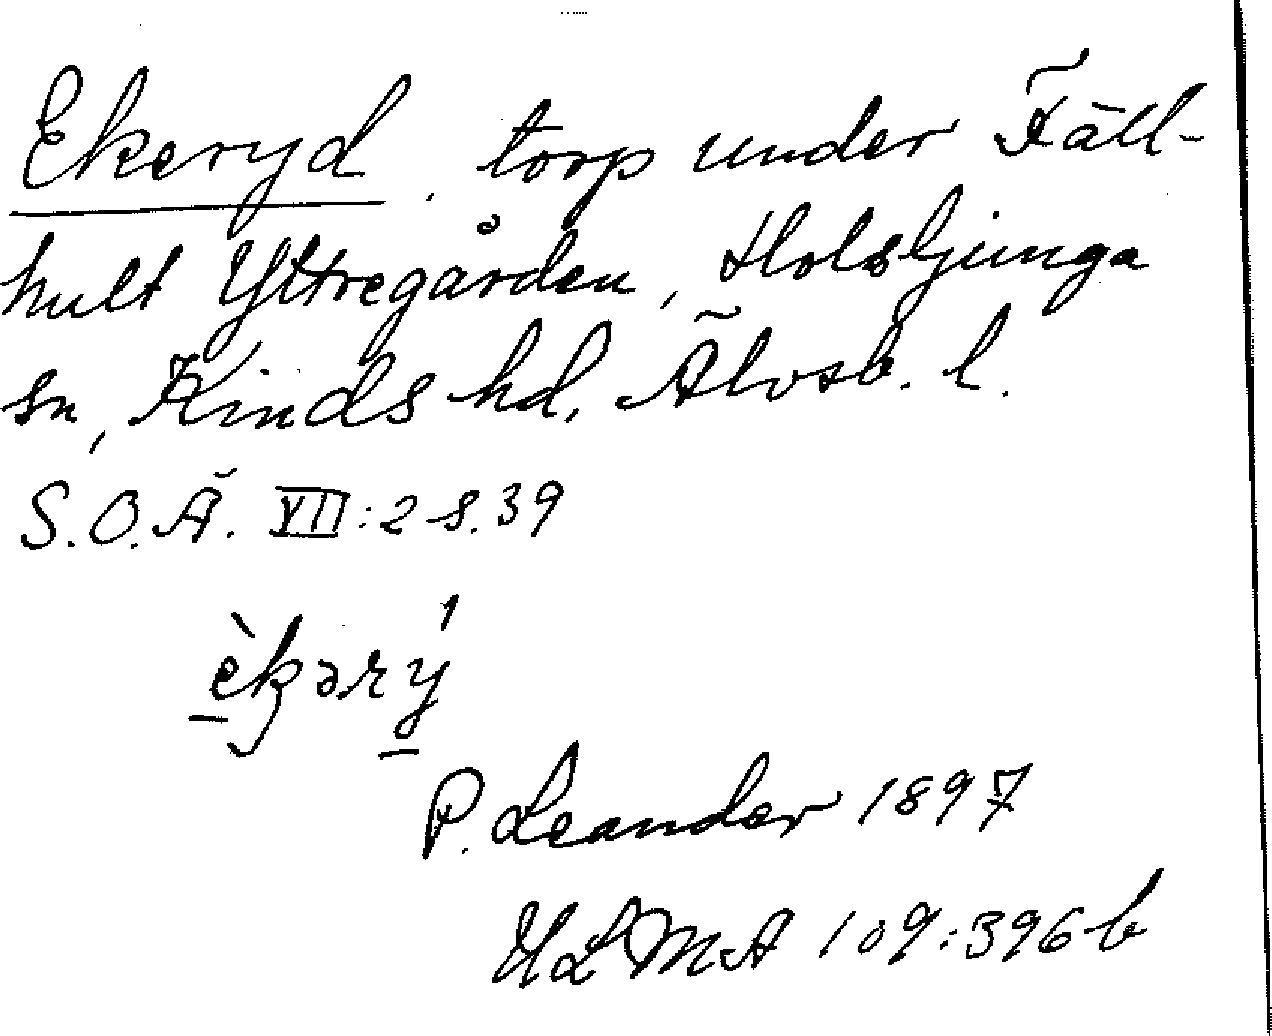 Ekeryd, torp under Fäll-
hult Yttregården, Holsljunga
sn, Kinds hd, Älvsb. l.
S.O.Ä. VII:2 s. 39
è̱kərý̱
P. Leander 1897
ULMA 109:396 b